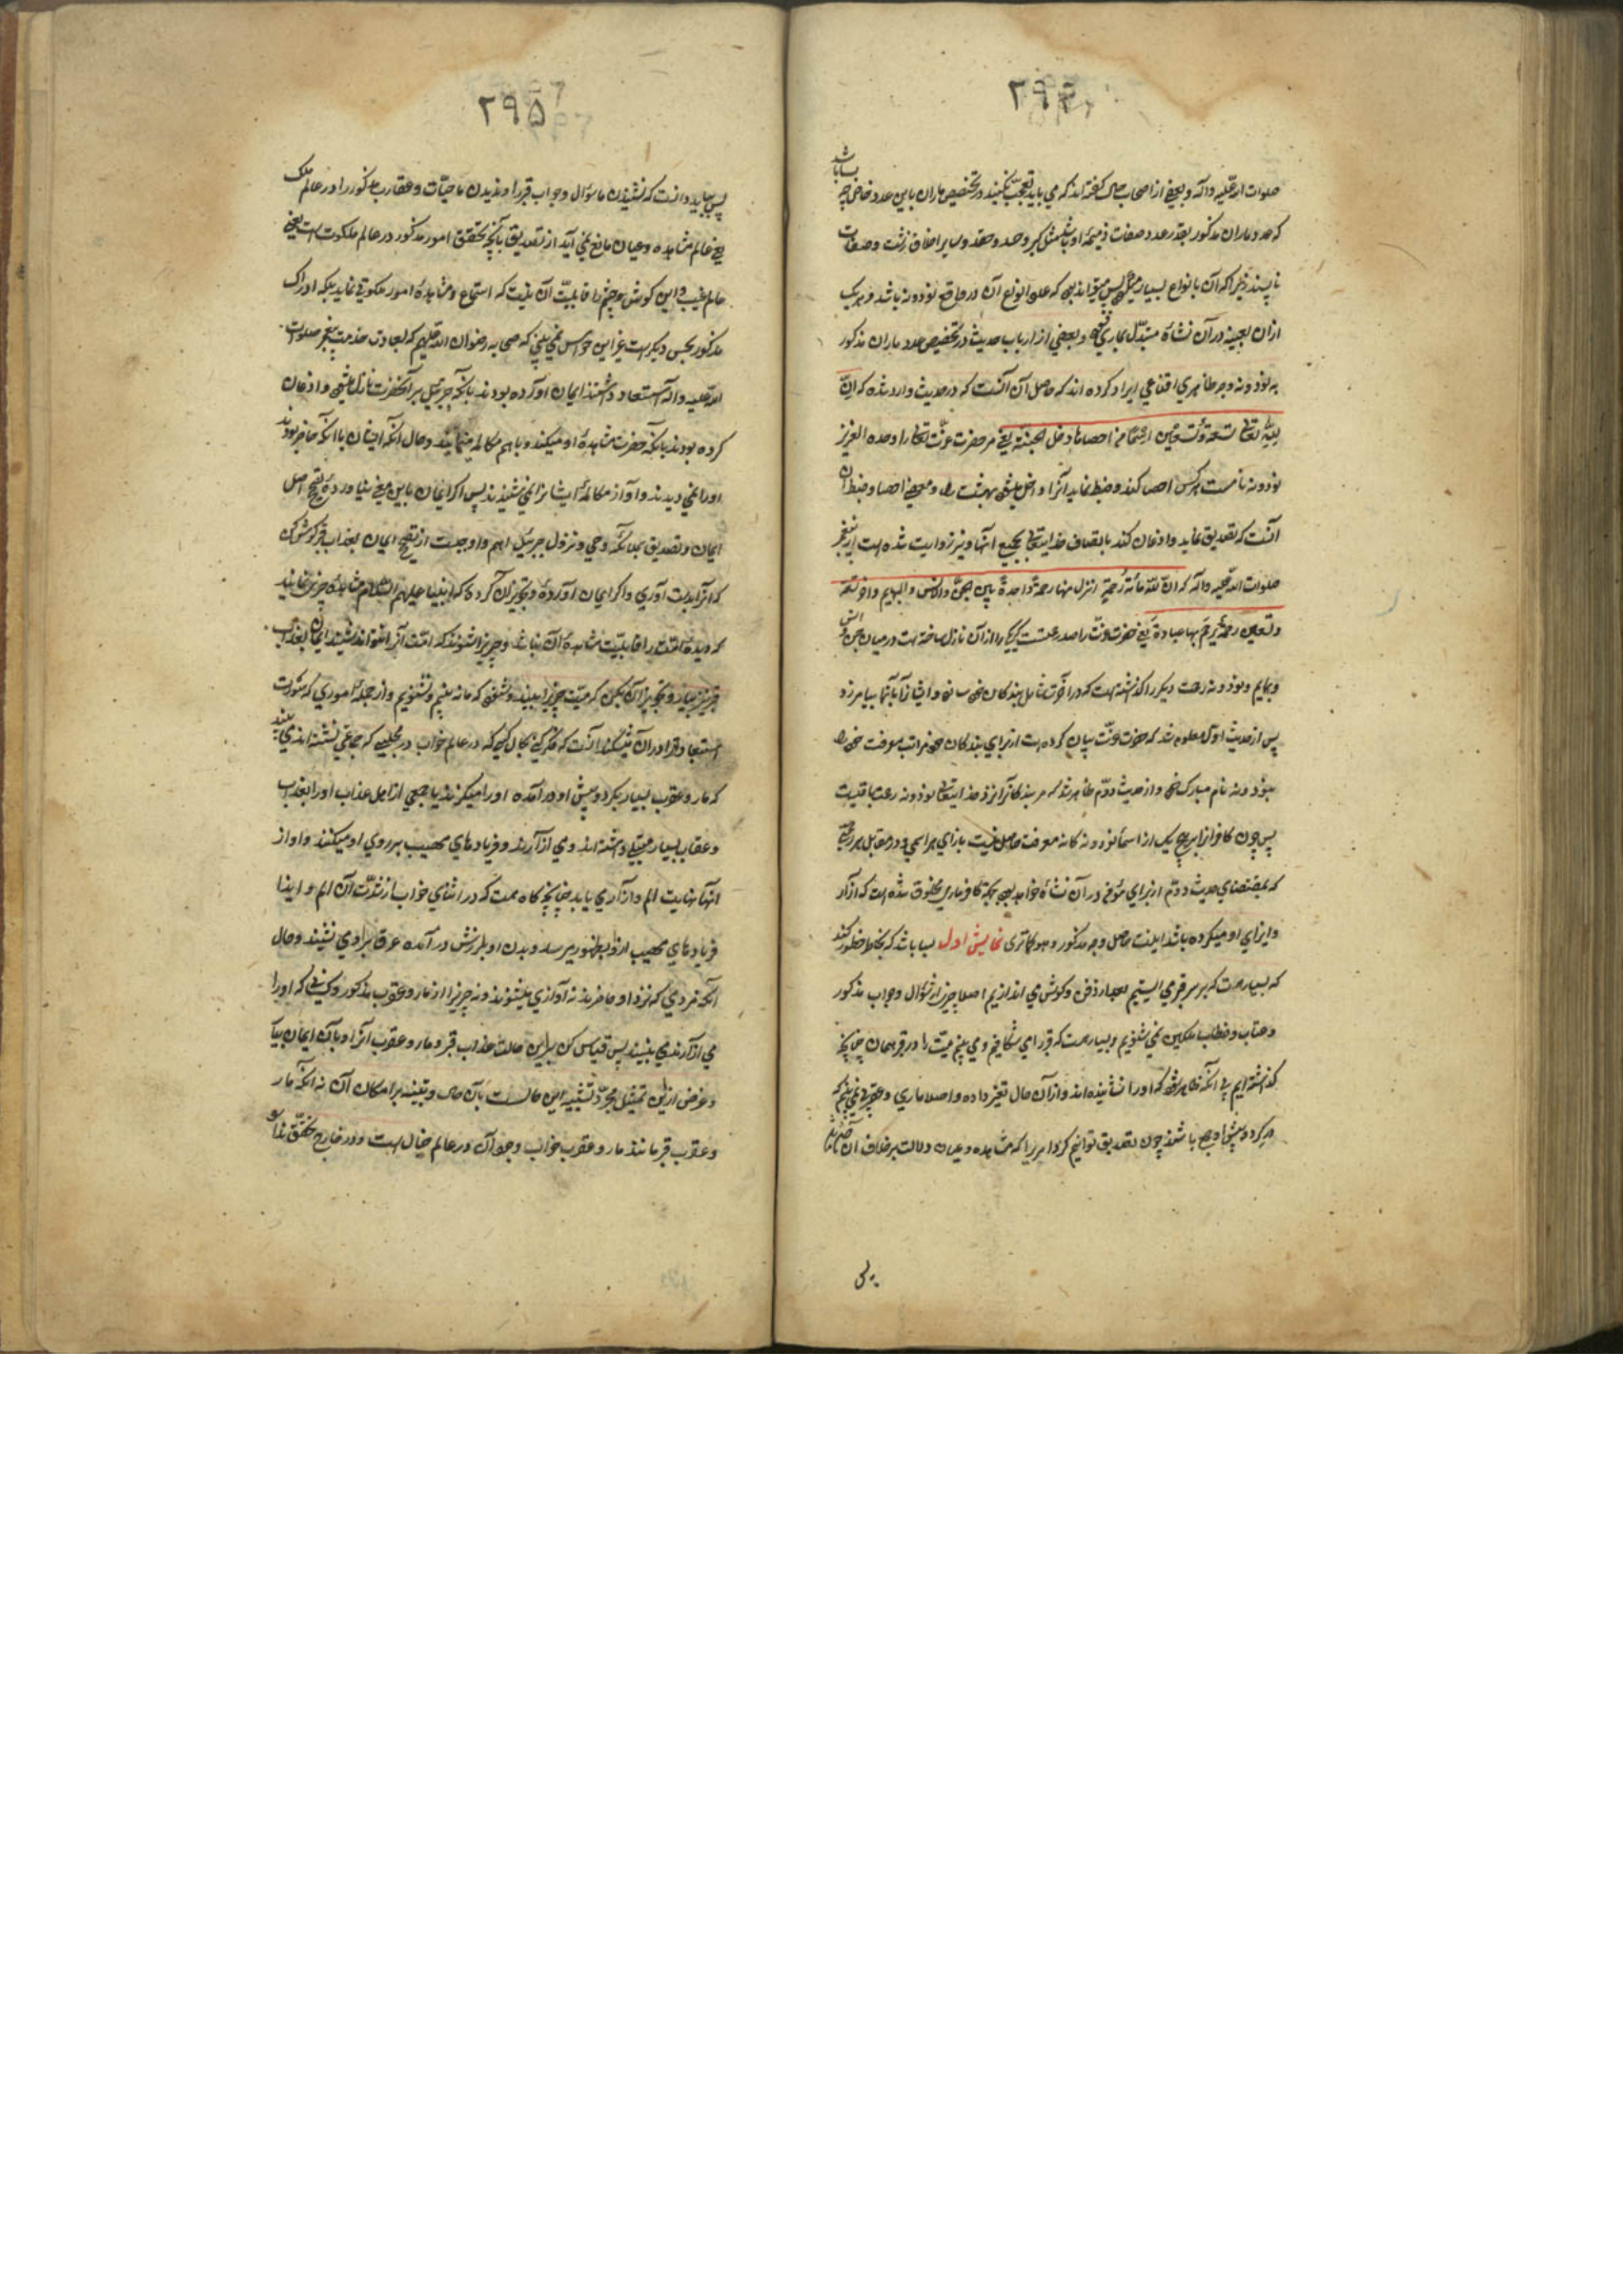 ۲۹۴
صلوات الله علیه وآله وبعضی از اصحاب حال گفته اند که می باید تعجب نکنند در تخصیص ماران باین عدد خاص چه بسا باشد
که عدد ماران مذکور بقدر عدد صفات ذمیمه او باشد مثل کبر وحسد وحقد وسایر اخلاق زشت وصفات
ناپسند زیرا که آن بانواع بسیار پس میتواند بود که عدد انواع آن در واقع نود ونه باشد وهر یک
ازان بعینه در آن نشأه متبدل بماری شود وبعضی از ارباب حدیث در تخصیص عدد ماران مذکور
به نود ونه وجه ظاهری اقناعی ایراد کرده اند که حاصل آن آنست که در حدیث وارد شده که ان
لله تعالی تسعة وتسعین اسما من احصاها دخل الجنة یعنی مر حضرت عزت تعالی را وحده العزیز
نود ونه نامست هرکس احصا کند وضبط نماید آنرا داخل میشود بهشت را ومعنی احصا وضبط آن
آنست که تصدیق نماید واذعان کند باتصاف خدایتعالی بجمیع آنها ونیز روایت شده است از پیغمبر
صلوات الله علیه وآله که ان لله مائة رحمة انزل منها رحمة واحدة بین الجن والانس والبهایم واخر تسعة
وتسعین رحمة یرحم بها عباده یعنی حضرت عزت را صد رحمتست یکی را از آن نازل ساخته است در میان جن وانس
وبهایم ونود ونه رحمت دیگر را گذاشته است که در آخرت شامل بندگان خود سازد وایشانرا بآنها بیامرزد
پس از حدیث اول معلوم شد که حضرت عزت بیان کرده است از برای بندگان خود مراتب معرفت خود را
بنود ونه نام مبارک خود واز حدیث دوم ظاهر شد که مر بندگانرا نزد خدایتعالی نود ونه رحمت باقیست
پس چون کافر از هیچ یک از اسماء نود ونه گانه معرفت حاصل نیست بازای هر اسمی ودر مقابل هر رحمتی
که بمقتضای حدیث دوم از برای مؤمن در آن نشأه خواهد بود بجهت کافر ماری مخلوق شده است که آزار
وایذای او میکرده باشد اینست حاصل وجه مذکور وهو کما تری نمایش اول بسا باشد که بخاطر خطور کند
که بسیار هست که بر سر قبری ایستیم وگوش می اندازیم اصلا چیزی از سؤال وجواب مذکور
وعتاب وخطاب ملکین نمی شنویم وبسیار هست که قبر را می شکافیم ومی بینیم میت را در قبر همان چنانچه
گذاشته ایم بی آنکه ظاهر شود که او را نشانیده اند واز آن حال تغیر داده واصلا ماری وعقربی نمی بینیم که
در گرد وپیش او جمع باشند چون تصدیق توانیم کرد امری را که مشاهده وعیان دلالت بر خلاف آن
پس
۲۹۵
پس بباید دانست که نشنیدن ما سؤال وجواب قبر را وندیدن ما حیات وعقارب مذکور را در عالم ملک
یعنی عالم مشاهده وعیان مانع نمی آید از تصدیق بآنکه تحقق امور مذکور در عالم ملکوت است یعنی
عالم غیب واین گوش وچشم را قابلیت آن نیست که استماع ومشاهدهٔ امور ملکوتی نماید بلکه ادراک
مذکور بحس دیگر است غیر این حواس نمی بینی که صحابه رضوان الله علیهم که بسعادت خدمت پیغمبر صلوات
الله علیه وآله استسعاد داشتند ایمان آورده بودند بآنکه جبرئیل بر آنحضرت نازل میشود واذعان
کرده بودند بآنکه حضرت مشاهدهٔ او میکند وباهم مکالمه مینمایند وحال آنکه ایشان با آنکه حاضر بودند
او را نمی دیدند وآواز مکالمهٔ ایشانرا نمی شنیدند پس اگر ایمان باین معنی نیاوردهٔ تصحیح اصل
ایمان وتصدیق بملائکه ووحی ونزول جبرئیل اهم واوجبست از تصحیح ایمان بعذاب قبر
که آنرا بدست آوری واگر ایمان آوردهٔ وتجویز آن کردهٔ که انبیا علیهم السلام مشاهدهٔ چیزی نمایند
که دیدهٔ امت را قابلیت مشاهدهٔ آن نباشد وچیزی را شنوند که امت آنرا نتوانند شنید ایمان بعذاب
قبر نیز بیار وتجویز آن بکن که میت چیزی را ببیند وبشنود که ما نه بینیم ونشنویم واز جمله اموری که
استبعاد ترا در آن میشکند آنست که فکر کنی بحال کسی که در عالم خواب در مجلسی که جماعتی نشسته اند می بیند
که مار وعقرب بسیار بگرد وپیش او در آمده او را میگزند یا جمعی از اهل عذاب او را بعذاب
وعقاب بسیار مبتلی داشته اند ومی آزارند وفریادهای مهیب بر روی او میکنند واو از
آنها نهایت الم وآزار می یابد چنانچه گاه هست که در اثنای خواب از شدت آن الم وایذا
فریادهای مهیب از او بظهور میرسد وبدن او بلرزش در آمده عرق بر او می نشیند وحال
آنکه مردمی که نزد او حاضرند نه آوازی میشنوند ونه چیزی را از مار وعقرب مذکور وکسانی که او را
می آزارند می بینند پس قیاس کن براین حالت عذاب قبر ومار وعقرب آنرا وبآن ایمان بیار
وغرض ازین تمثیل مجرد تشبیه این حالست بآن حال وتنبیه بر امکان آن نه آنکه مار
وعقرب قبر مانند مار وعقرب خواب وجود آن در عالم خیال است ودر خارج تحقق ندارد